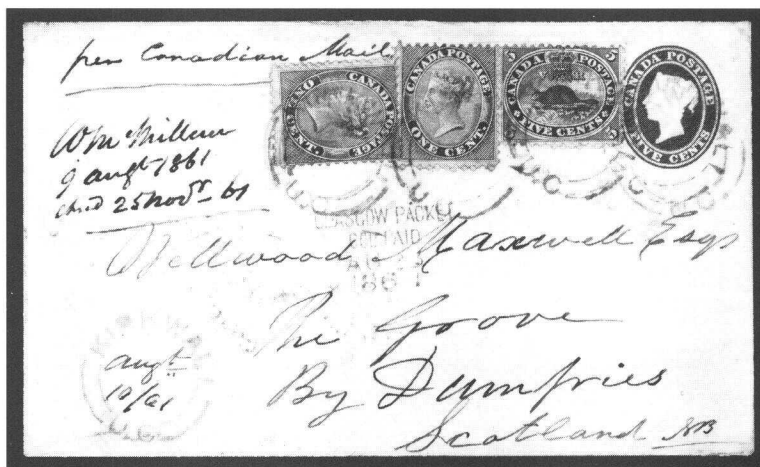 per Canadian Mail
CANADA POSTAGE
ONE CENT.
CANADA POSTAGE
ONE CENT.
5 CANADA POSTAGE 5
FIVE CENTS
5
CANADA POSTAGE
FIVE CENTS
Wm Millan
9 augt 1861
25 Novr 61
GLASGOW PACKET
PAID
AU
1861
Wellwood Maxwell Esqr
The Grove
By Dumfries
Scotland NB
KIRKWALL
augt
10/61